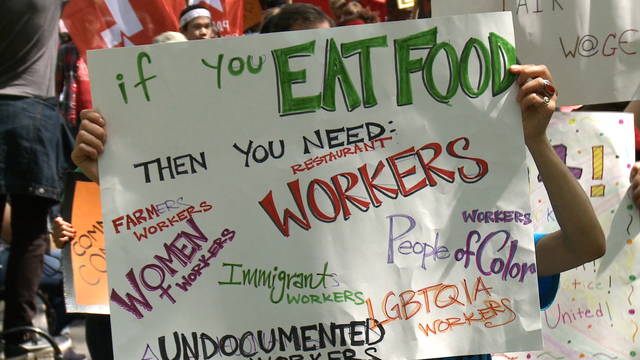 if you EAT FOOD
THEN YOU NEED:
RESTAURANT
WORKERS
FARMERS
WORKERS
WOMEN
T WORKERS
WORKERS
People of Color
Immigrants
WORKERS
LGBTQIA
WORKERS
UNDOCUMENTED
WORKERS
W@GE
United!